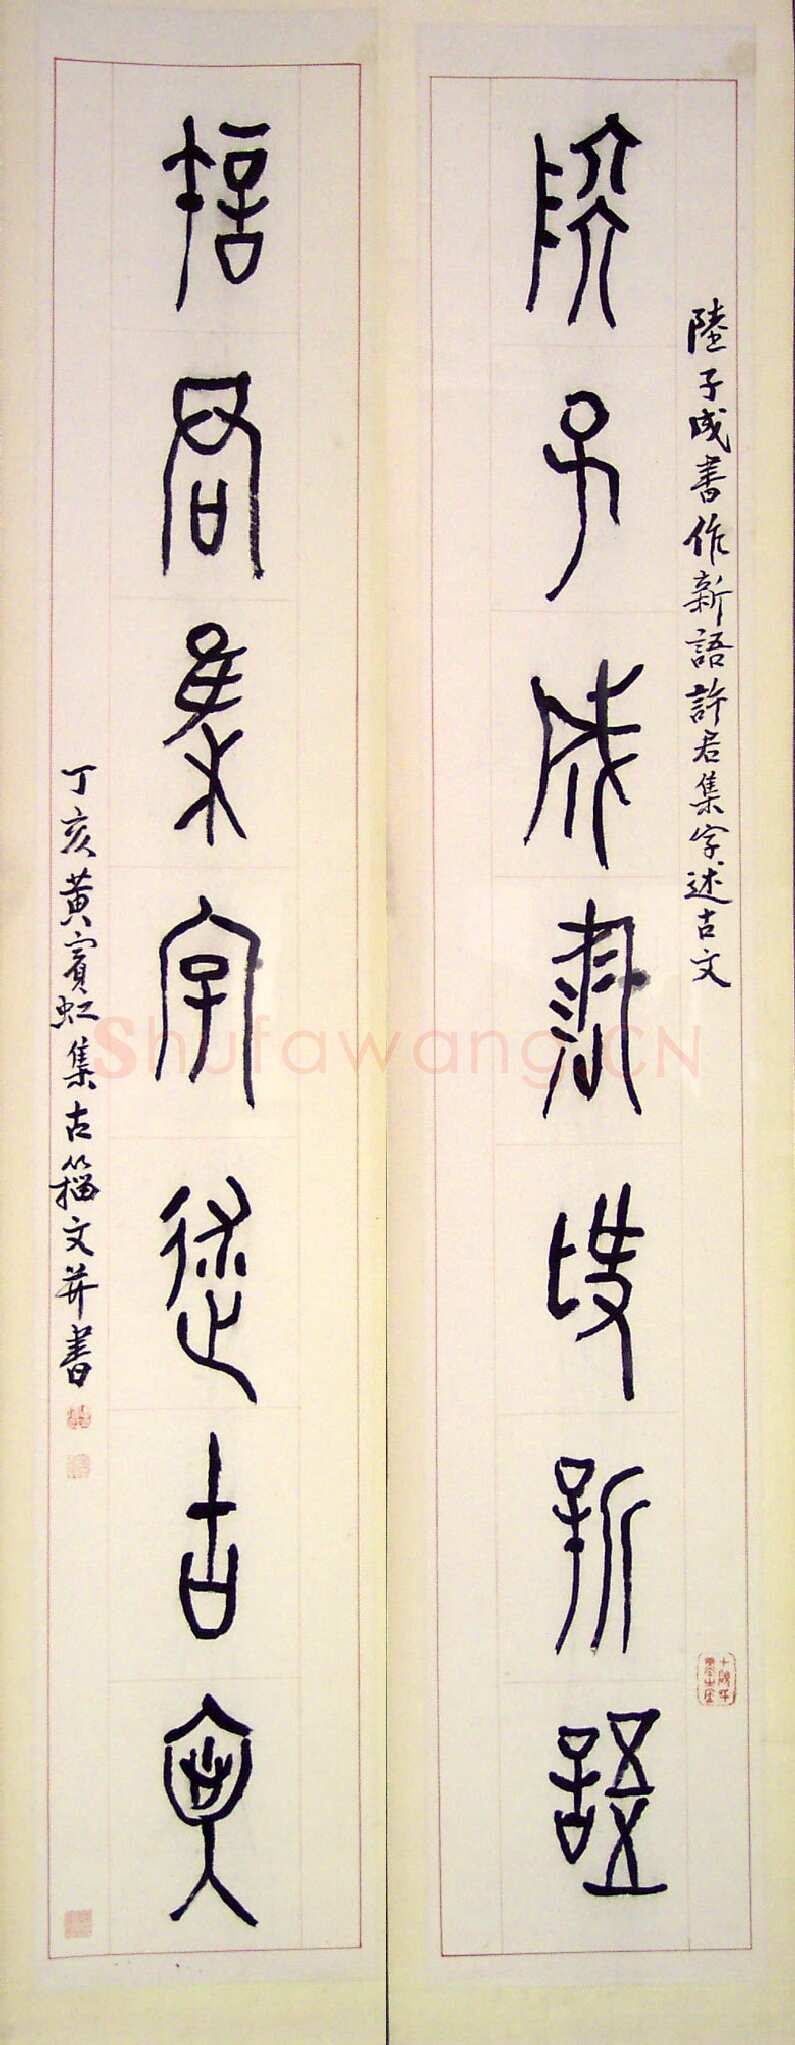 陸子成書作新語許君集字述古文
陸子成書作新語
許君集字述古文
丁亥黄賓虹集古籀文并書
Shufawang.CN